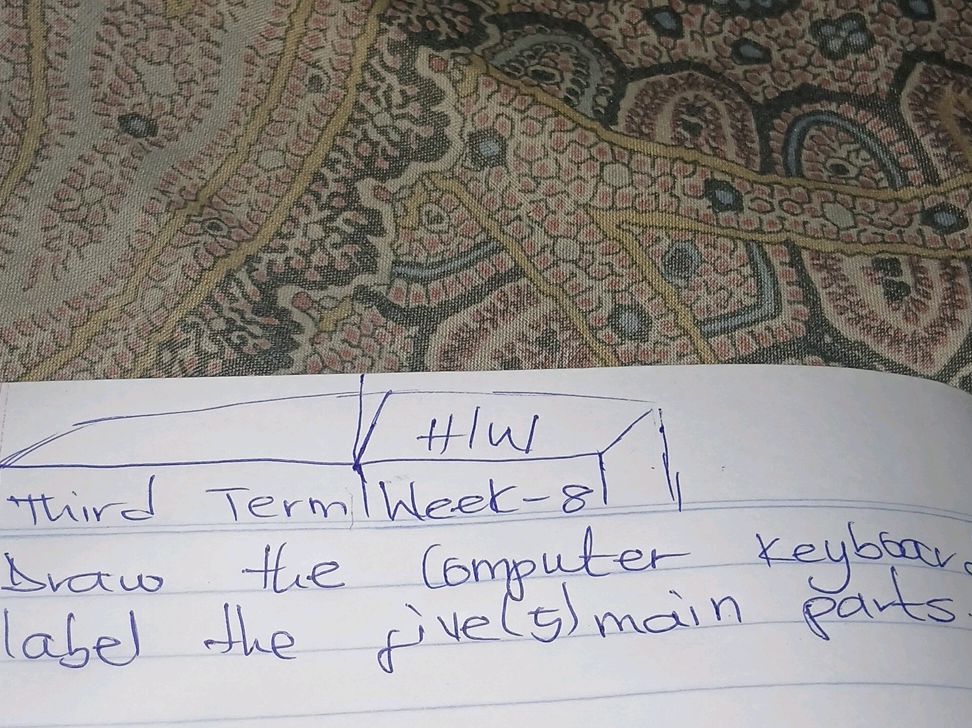 H/W
Third Term Week-8
Draw the Computer Keyboar
label the five(5) main parts.